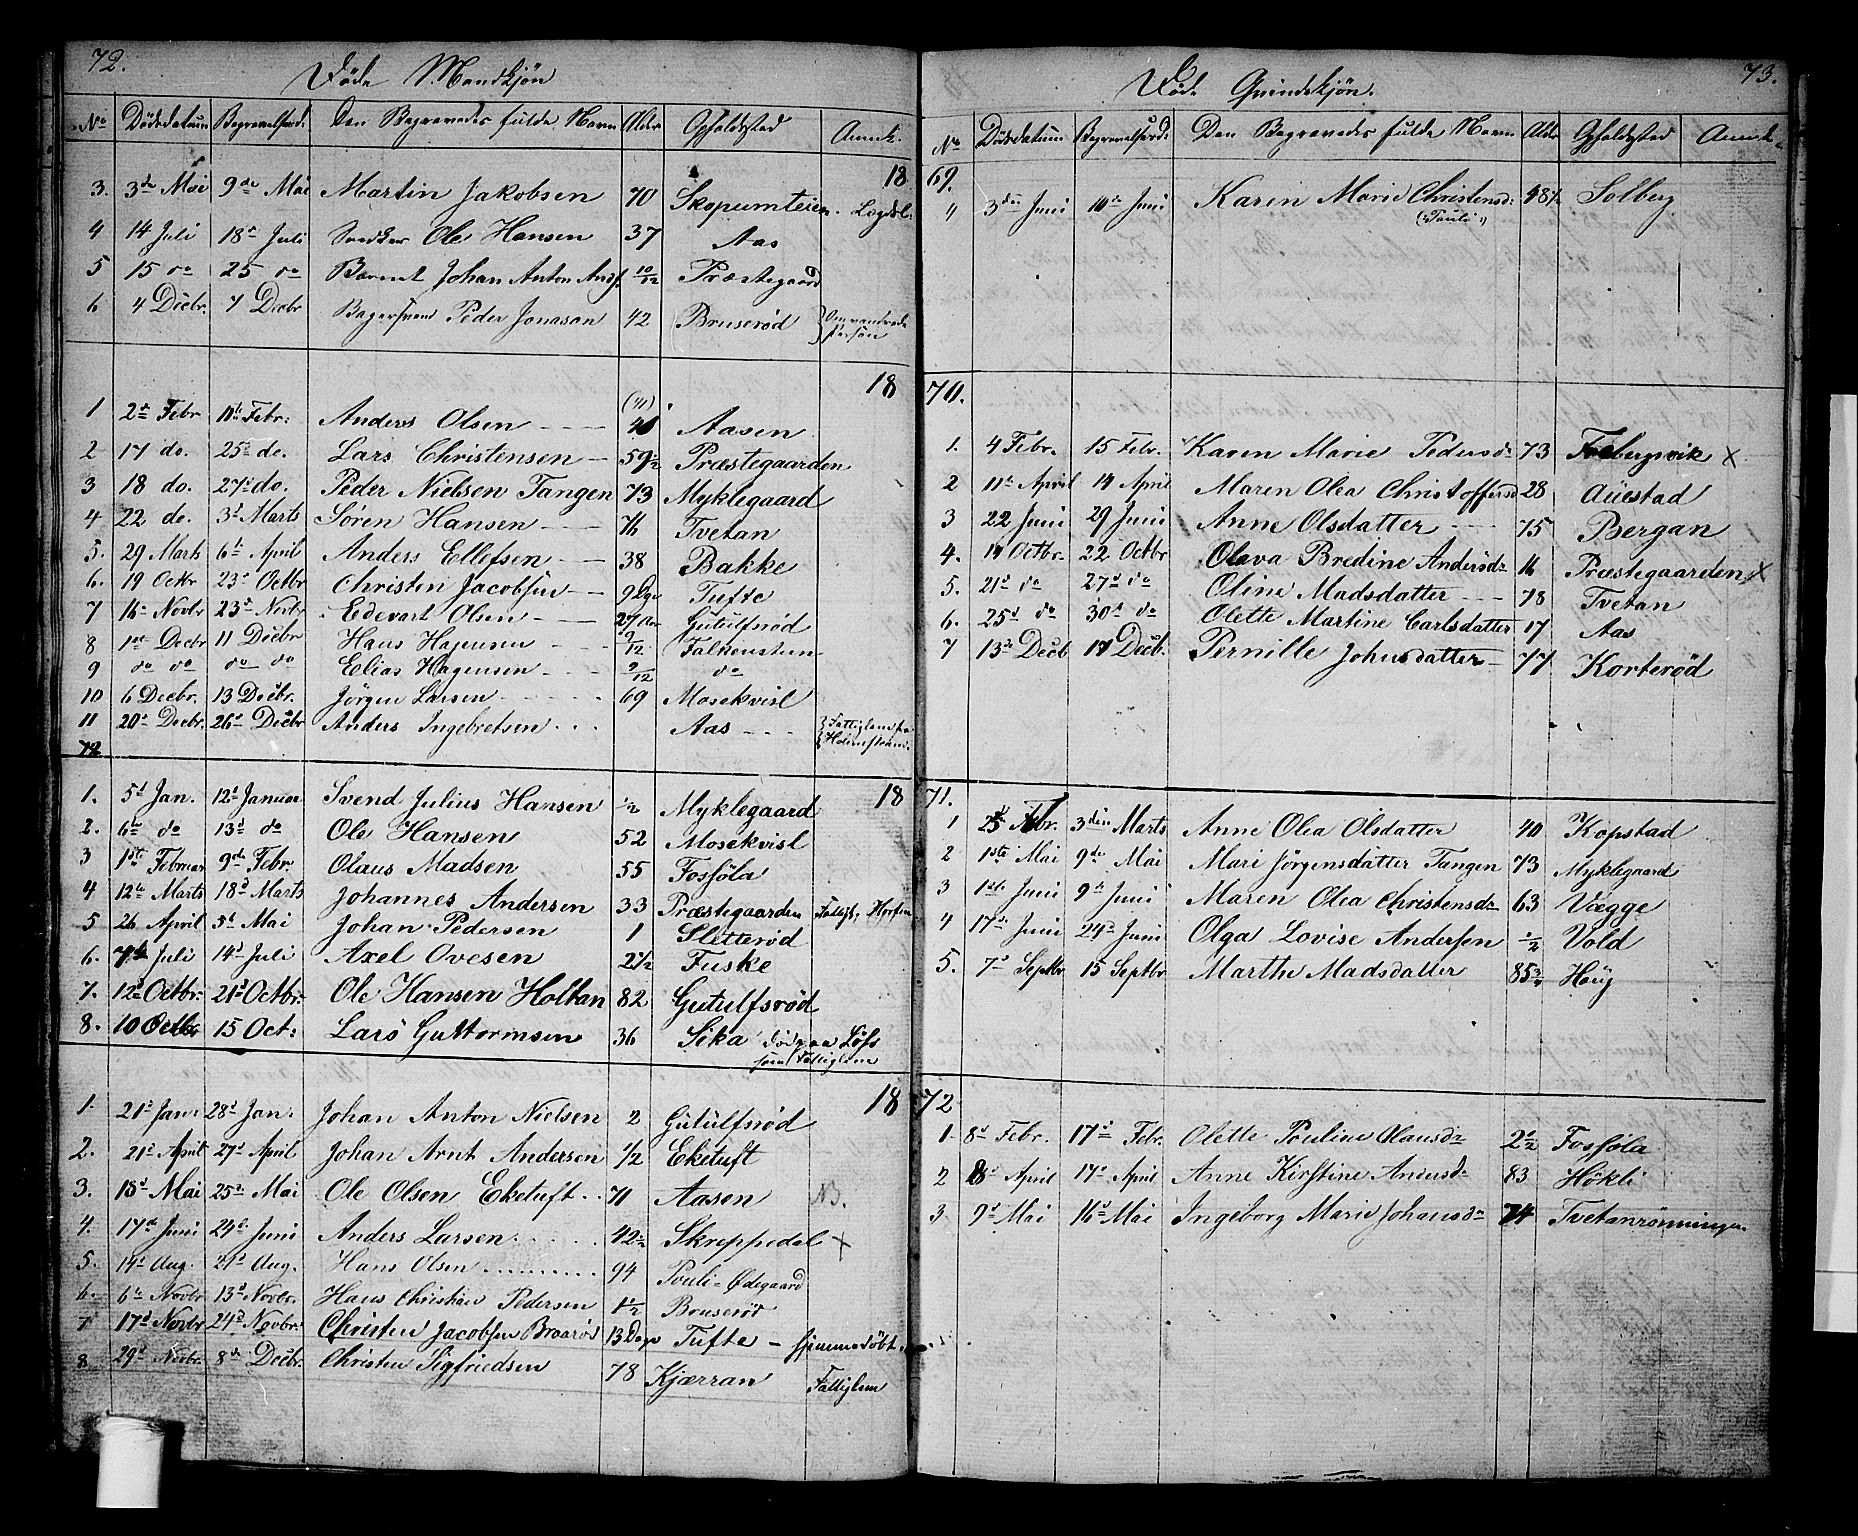 72.
Døde Mandkjøn
No Dødsdatum Begravelsesd: Den Begravedes fulde Navn Alder Opholdssted Anmk.
18
3. 3de Mai 9de Mai Martin Jakobsen 70 Skopumteien Lægdsl.
4 14 Juli 18de Juli Ole Hansen 37 Aas
5 15 do 25 do Barnet Johan Anton Andr. 10/12 Præstegaard
6 4 Decbr. 7 Decbr Bagersvend Peder Jonason 42 Bruserød Omvandrede Person
18
1 2de Febr 10de Febr: Anders Olsen (41) Aasen
2 17 do. 25de do. Lars Christensen 59 1/2 Præstegaarden
3 18 do. 27de do. Peder Nielsen Tangen 73 Myklegaard
4 22 do. 3d Marts Søren Hansen 76 Tvetan
5. 29 Marts 6te April Anders Ellefsen 38 Bakke
6. 19 Octbr 23de Octbr Christen Jacobsen 9 Dge Tufte
7 16de Novbr 23de Novbr Edevart Olsen 27 Gutulfsrød
8 1ste Decbr 11 Decbr Hans Hagensen 9/12 Falkensten
9 do do do do Elias Hagensen 9/12 do
10 6 Decbr. 13 Decbr. Jørgen Larsen 69 Mosekvisl
11 20de Decbr. 26de Decbr Anders Ingebretsen Aas Fattiglem fra Holmestrand
12
18
1. 5d Jan. 12d Januar Svend Julius Hansen 1/2 Myklegaard
2. 6te do 13d do Ole Hansen 52 Mosekvisl
3 1ste Februar 9de Febr. Olaus Madsen 55 Fosføla
4 12te Marts 18d Marts Johannes Andersen 33 Præstegaarden Fattigl. Horten
5 26 April 5d Mai Johan Pedersen 1 Sletterød
6. 7de Juli 14d Juli Axel Ovesen 2 1/2 Fuske
7. 12d Octbr: 21d Octbr: Ole Hansen Holtan 82 Gutulfsrød
8. 10 Octbr 15 Oct: Lars Guttormsen 36 Sika død paa
som Fattiglem
18
1. 21d Jan: 28d Jan. Johan Anton Nielsen 2 Gutulfsrød
2. 21d April 27d April Johan Arnt Andersen 1/2 Eketuft
3. 18d Mai 25de Mai Ole Olsen Eketuft 71 Aasen NB.
4. 17de Juni 24de Juni Anders Larsen 42 1/2 Skreppedal X
5. 14d Aug. 21d Aug. Hans Olsen 94 Pouli-Ødegaard
6. 6te Novbr 13d Novbr. Hans Christian Pedersen 1 1/2 Bruserød
7 17d Novbr 24d Novbr. Christen Jacobsen Braarød 13 Dage Tufte - hjemmedøbt.
8 29d Novbr. 8de Decbr. Christen Sigfriedsen 78 Kjærran Fattiglem
73.
Døde Qvindekjøn.
No Dødsdatum Begravelsesd: Den Begravedes fulde Navn Alder Opholdssted Anmk.
69.
4 3die Juni 10de Juni Karen Marie Christensd: 48 1/2 Solberg
(:Pouli:)
70.
1. 4 Febr. 15 Febr. Karen Marie Pedersd 73 Frebergsvik X
2 11te April 17 April Maren Olea Christoffersd 28 Auestad
3 22 Juni 29 Juni Anne Olsdatter 75 Bergan
4. 17 Octbr. 22 Octbr Olava Bredine Andersd 16 Præstegaarden X
5. 21d do 27d do Oline Madsdatter 78 Tvetan
6. 25d do 30d do Olette Martine Carlsdatter 17 Aas
7 13de Decb 17 Decb. Pernille Johnsdatter 77 Korterød
71.
1 25 Febr. 3die Marts Anne Olea Olsdatter 40 Kopstad
2 1ste Mai 9de Mai Mari Jørgensdatter Tangen 73 Myklegaard
3 1ste Juni 9de Juni Maren Olea Christensd 63 Vægge
4 17de Juni 24de Juni Olga Lovise Andersen 1/2 Vold
5. 7d Septbr 15 Septbr Marthe Madsdatter 85 3/4 Houg
72
1. 8d Febr. 17d Febr. Olette Pouline Olausd 2 1/2 Fosføla
2 8d April 17d April Anne Kirstine Andersd 83 Høkli
3 9d Mai 16d Mai Ingeborg Marie Johansd 74 Tvetanrønningen